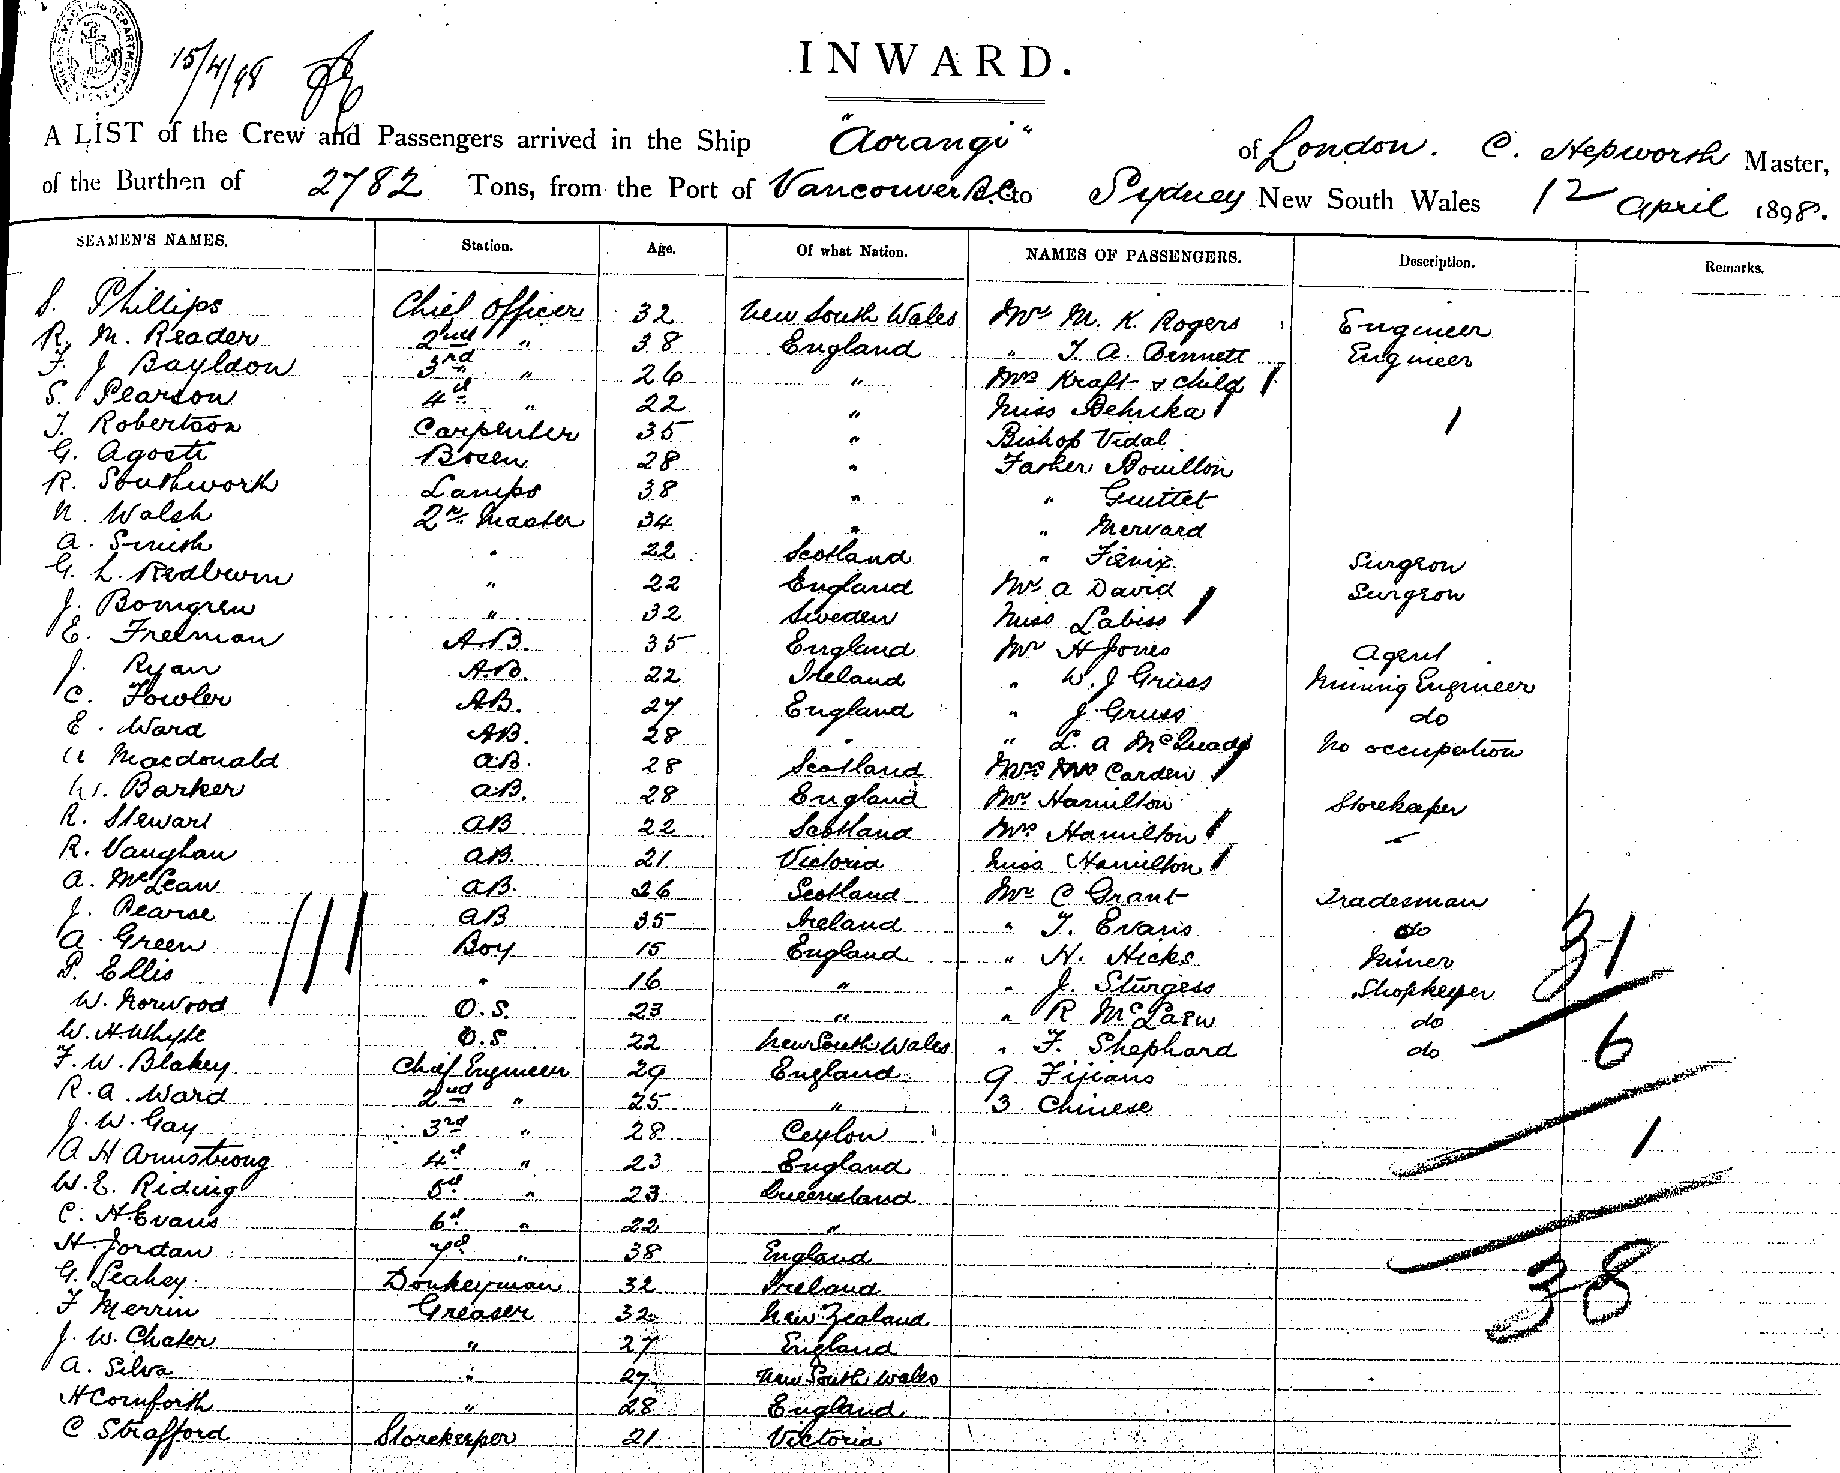 15/4/98
INWARD.
A LIST of the Crew and Passengers arrived in the Ship "Aorangi" of London. C. Hepworth Master,
of the Burthen of 2782 Tons, from the Port of Vancouver B.C. to Sydney New South Wales 12 April 1898.
SEAMEN'S NAMES. Station. Age. Of what Nation. NAMES OF PASSENGERS. Description. Remarks.
S. Phillips Chief Officer 32 New South Wales Mr M. K. Rogers Engineer
R. M. Reader 2nd " 38 England " T. A. Bennett Engineer
F. J Bayldon 3rd " 26 " Mrs Kraft & child
S. Pearson 4th " 22 " Miss
T. Robertson Carpenter 35 " Bishop Vidal
G. Agosti Bosen 28 " Father Bouillon
R. Southwork Lamps 38 " " Guittet
N. Walsh 2r Master 34 " " Mervard
A. Smith " 22 Scotland " Surgeon
G. L. Redburn " 22 England Mr A David Surgeon
J. Bomgren " 32 Sweden Miss Labiss
E. Freeman A.B. 35 England Mr H Jones Agent
J. Ryan A.B. 22 Ireland " W. J Gruss Mining Engineer
C. Fowler AB. 27 England " J Gruss do
E. Ward AB. 28 " " L. A McQuade No occupation
Macdonald AB. 28 Scotland Mrs Carden
W. Barker AB. 28 England Mr Hamilton Storekeeper
R. Stewart AB 22 Scotland Mrs Hamilton
R. Vaughan AB. 21 Victoria Miss Hamilton
A. McLean AB. 26 Scotland Mr C Grant Tradesman
J. Pearse AB 35 Ireland " T. Evans do
A. Green Boy 15 England " H. Hicks Miner 31
P. Ellis " 16 " " J. Sturgess Shopkeeper
W. Norwood O.S. 23 " " R McLaren do
W. H. Whyte O.S 22 New South Wales " F. Shephard do 6
F. W. Blakey Chief Engineer 29 England 9 Fijians
R. A. Ward 2nd " 25 " 3 Chinese
J. W. Gay 3rd " 28 Ceylon 1
A H Armstrong 4th " 23 England
W. E. Riding 5th " 23 Queensland
C. H. Evans 6th " 22 "
H. Jordan 7th " 38 England 38
G. Leahey Donkeyman 32 Ireland
F Merrin Greaser 32 New Zealand
J. W. Chater " 27 England
A. Silva " 27 New South Wales
H Cornforth " 28 England
C Strafford Storekeeper 21 Victoria